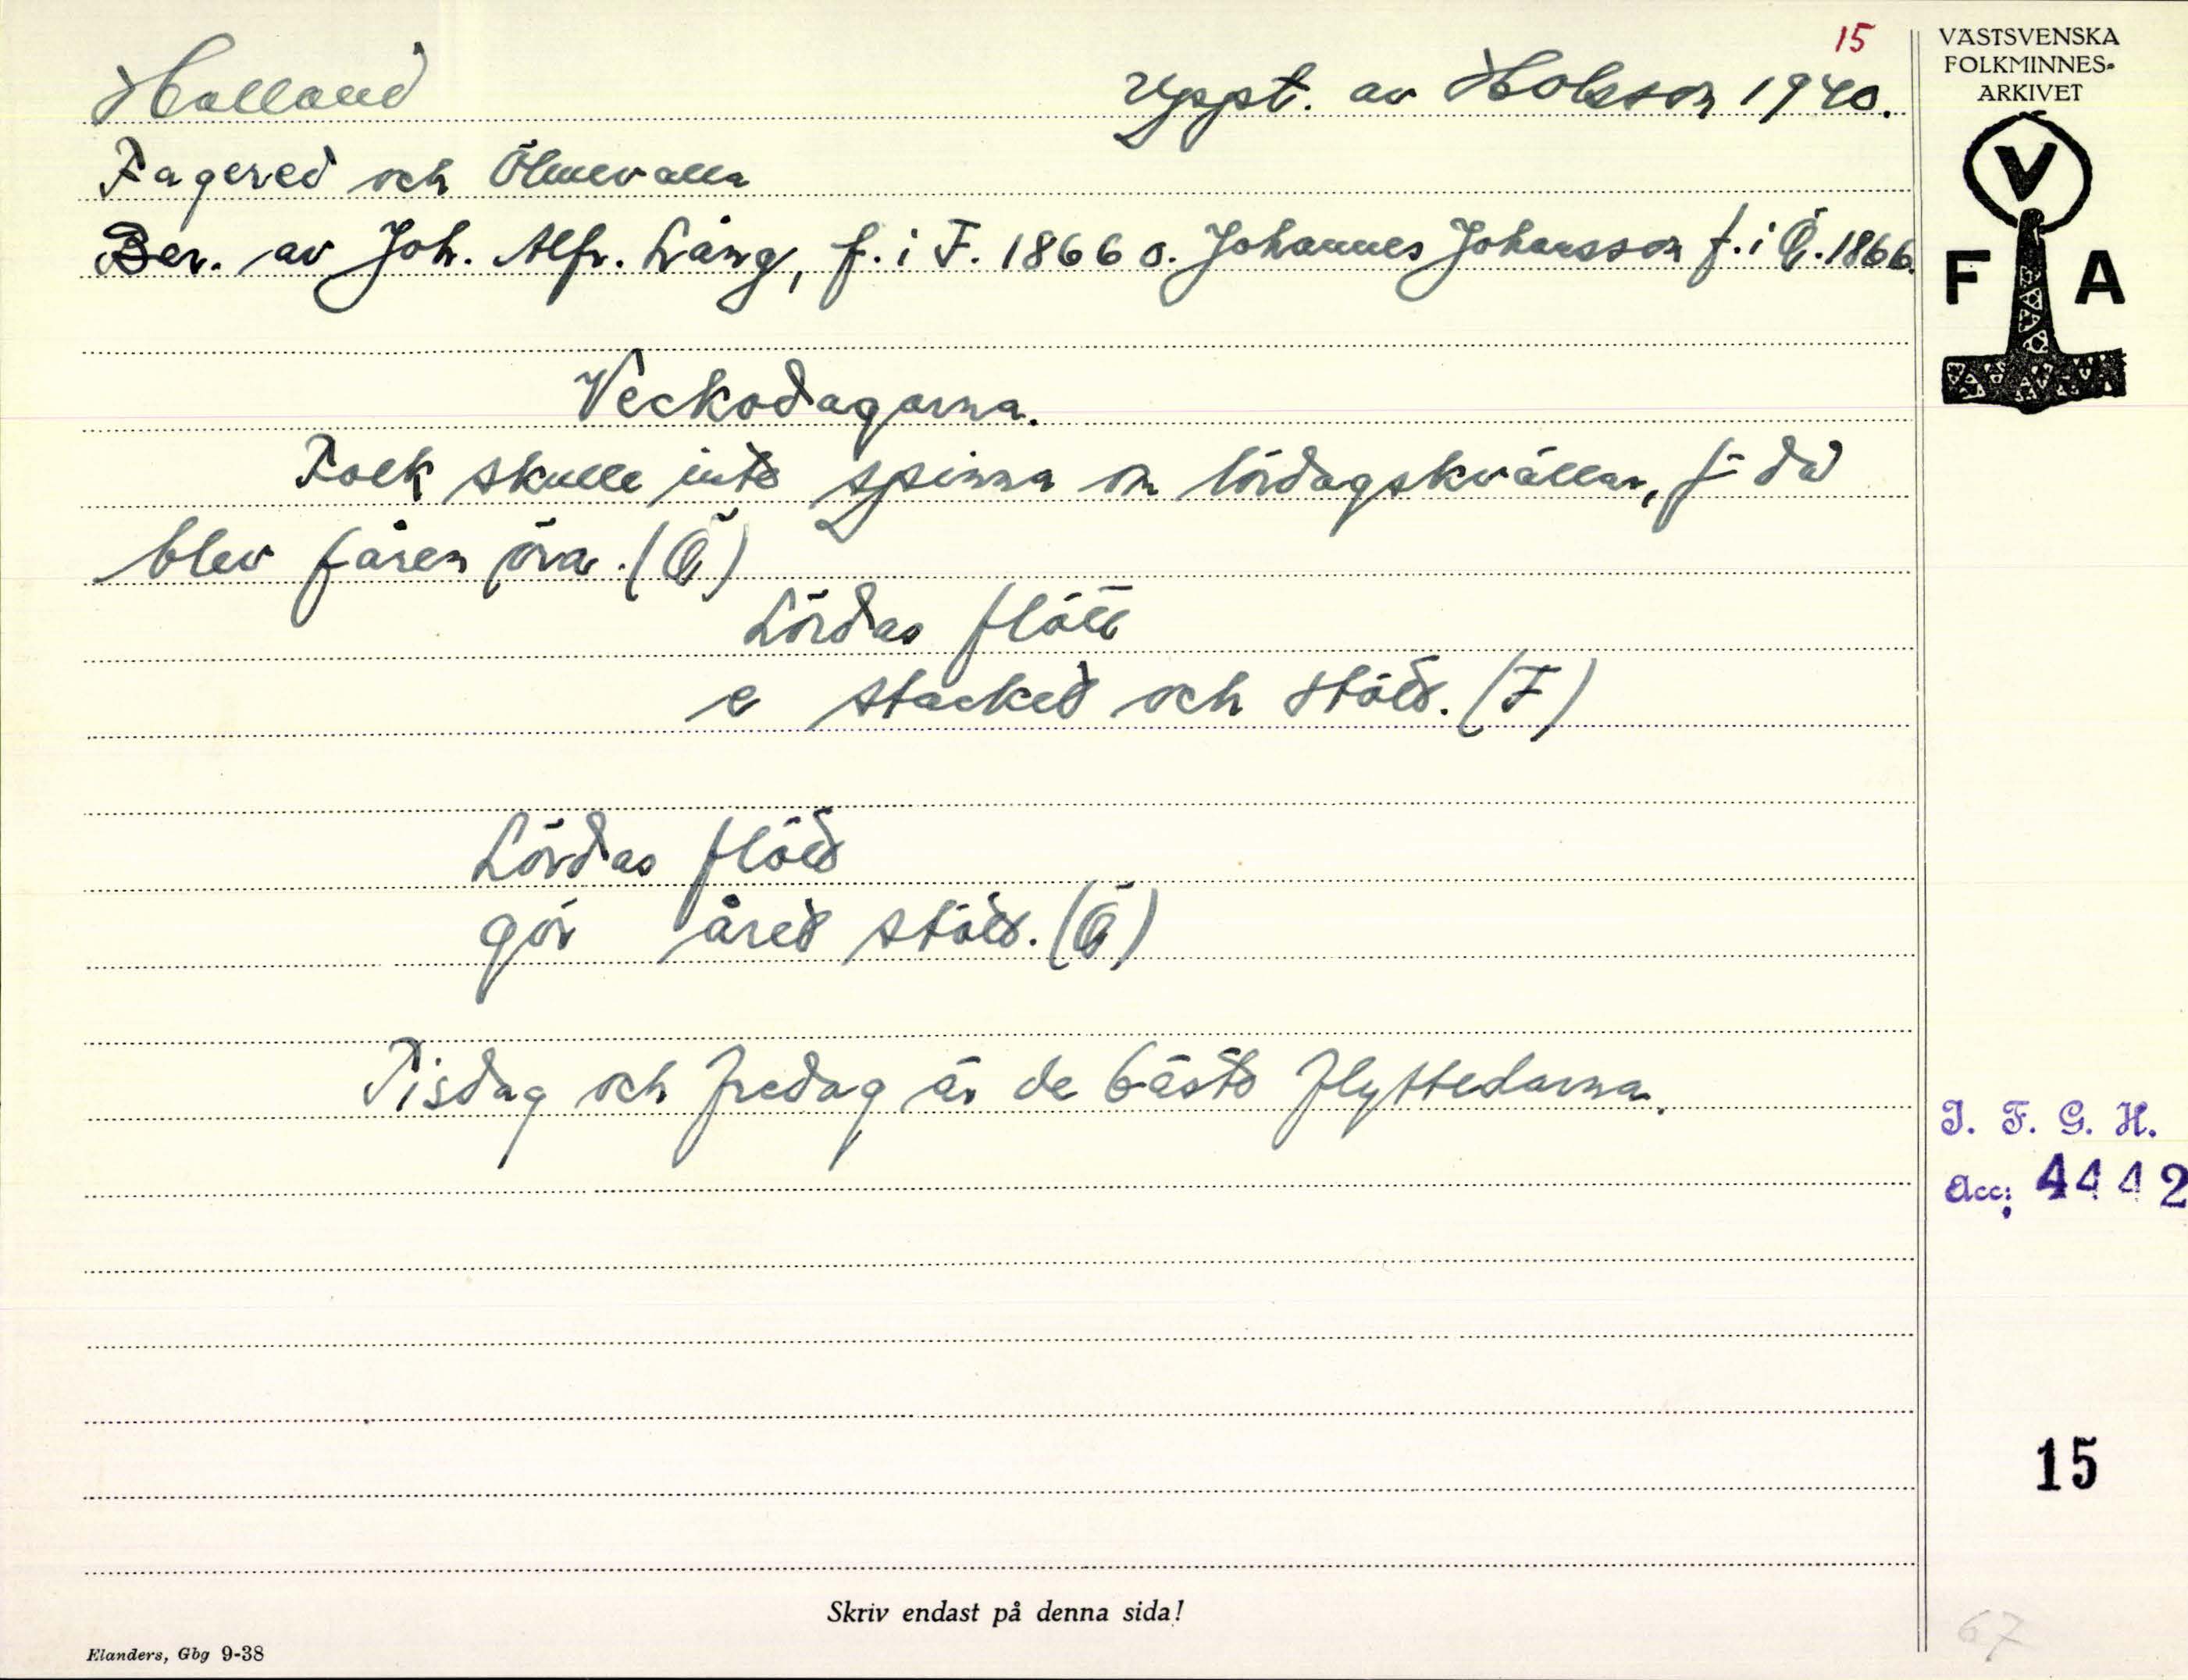 15
Halland
Uppt. av Holsson 1940.
Fagered och Ölmevalla
Ber. av Joh. Alfr. Lång, f. i F. 1866 o. Johannes Johansson f. i Ö. 1866.
Veckodagarna.
Folk skulle inte spinna om lördagskvällar, för då
blev fåren öra. (Ö)
Lördas flött
e stacked och stött. (F)
Lördas flött
gör åred stött. (Ö)
Tisdag och fredag är de bäste flyttedarna.
Skriv endast på denna sida!
Elanders, Gbg 9-38
VÄSTSVENSKA
FOLKMINNES-
ARKIVET
V
F A
I. F. G. H.
Acc: 4442
15
67